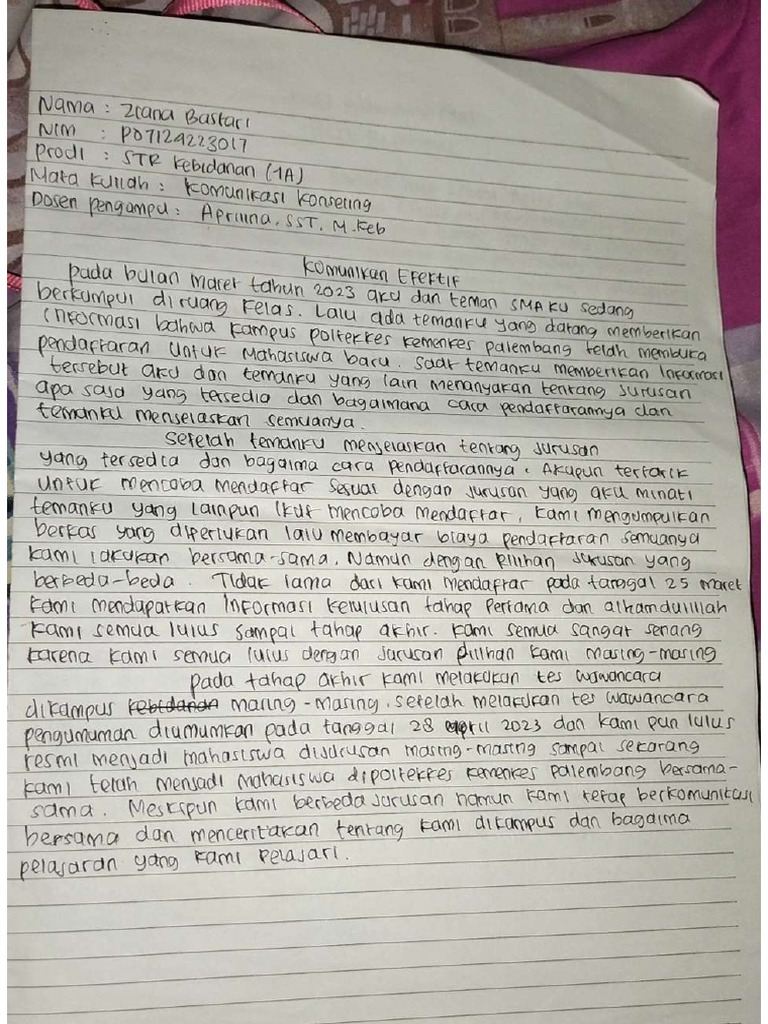 Nama : Ziana Bastari
NIM : P07124223017
Prodi : STR Kebidanan (1A)
Mata Kuliah : Komunikasi Konseling
Dosen pengampu : Aprilina, SST. M.Keb
Komunikan Efektif
pada bulan Maret tahun 2023 aku dan teman SMA ku sedang
berkumpul diruang kelas. Lalu ada temanku yang datang memberikan
Informasi bahwa kampus poltekkes kemenkes palembang telah membuka
pendaftaran untuk Mahasiswa baru. Saat temanku memberikan Informasi
tersebut aku dan temanku yang lain menanyakan tentang jurusan
apa saja yang tersedia dan bagaimana cara pendaftarannya dan
temanku menjelaskan semuanya.
Setelah temanku menjelaskan tentang jurusan
yang tersedia dan bagaima cara pendaftarannya. Akupun tertarik
untuk mencoba mendaftar sesuai dengan jurusan yang aku minati
temanku yang lainpun ikut mencoba mendaftar, kami mengumpulkan
berkas yang diperlukan lalu membayar biaya pendaftaran semuanya
kami lakukan bersama-sama. Namun dengan pilihan jurusan yang
berbeda-beda. Tidak lama dari kami mendaftar pada tanggal 25 maret
kami mendapatkan Informasi kelulusan tahap pertama dan alhamdulillah
kami semua lulus sampai tahap akhir. kami semua sangat senang
karena kami semua lulus dengan jurusan pilihan kami masing-masing
pada tahap akhir kami melakukan tes wawancara
dikampus kebidanan masing-masing. setelah melakukan tes wawancara
pengumuman diumumkan pada tanggal 28 april 2023 dan kami pun lulus
resmi menjadi mahasiswa dijurusan masing-masing sampai sekarang
kami telah menjadi mahasiswa dipoltekkes kemenkes palembang bersama-
sama. Meskipun kami berbeda jurusan namun kami tetap berkomunikasi
bersama dan menceritakan tentang kami dikampus dan bagaima
pelajaran yang kami pelajari.